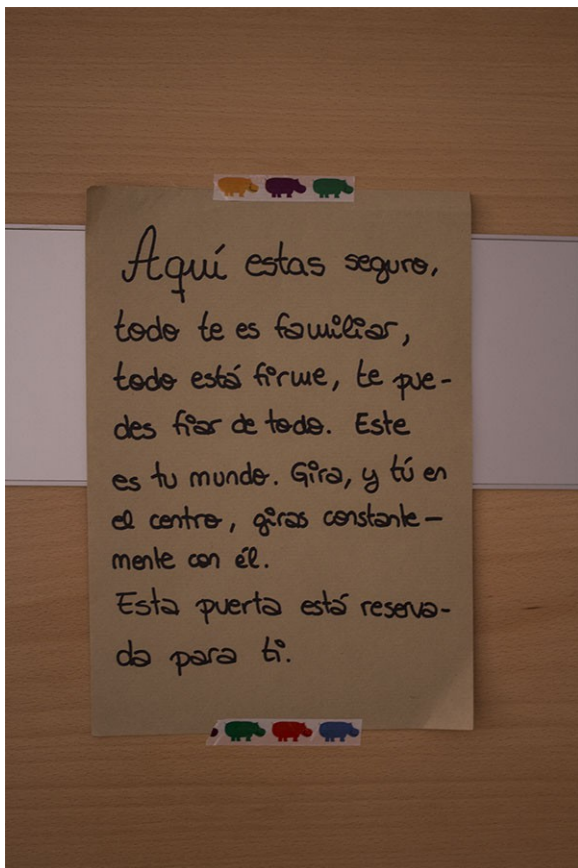 Aquí estas seguro,
todo te es familiar,
todo está firme, te pue-
des fiar de todo. Este
es tu mundo. Gira, y tú en
el centro, giras constante-
mente con él.
Esta puerta está reserva-
da para ti.